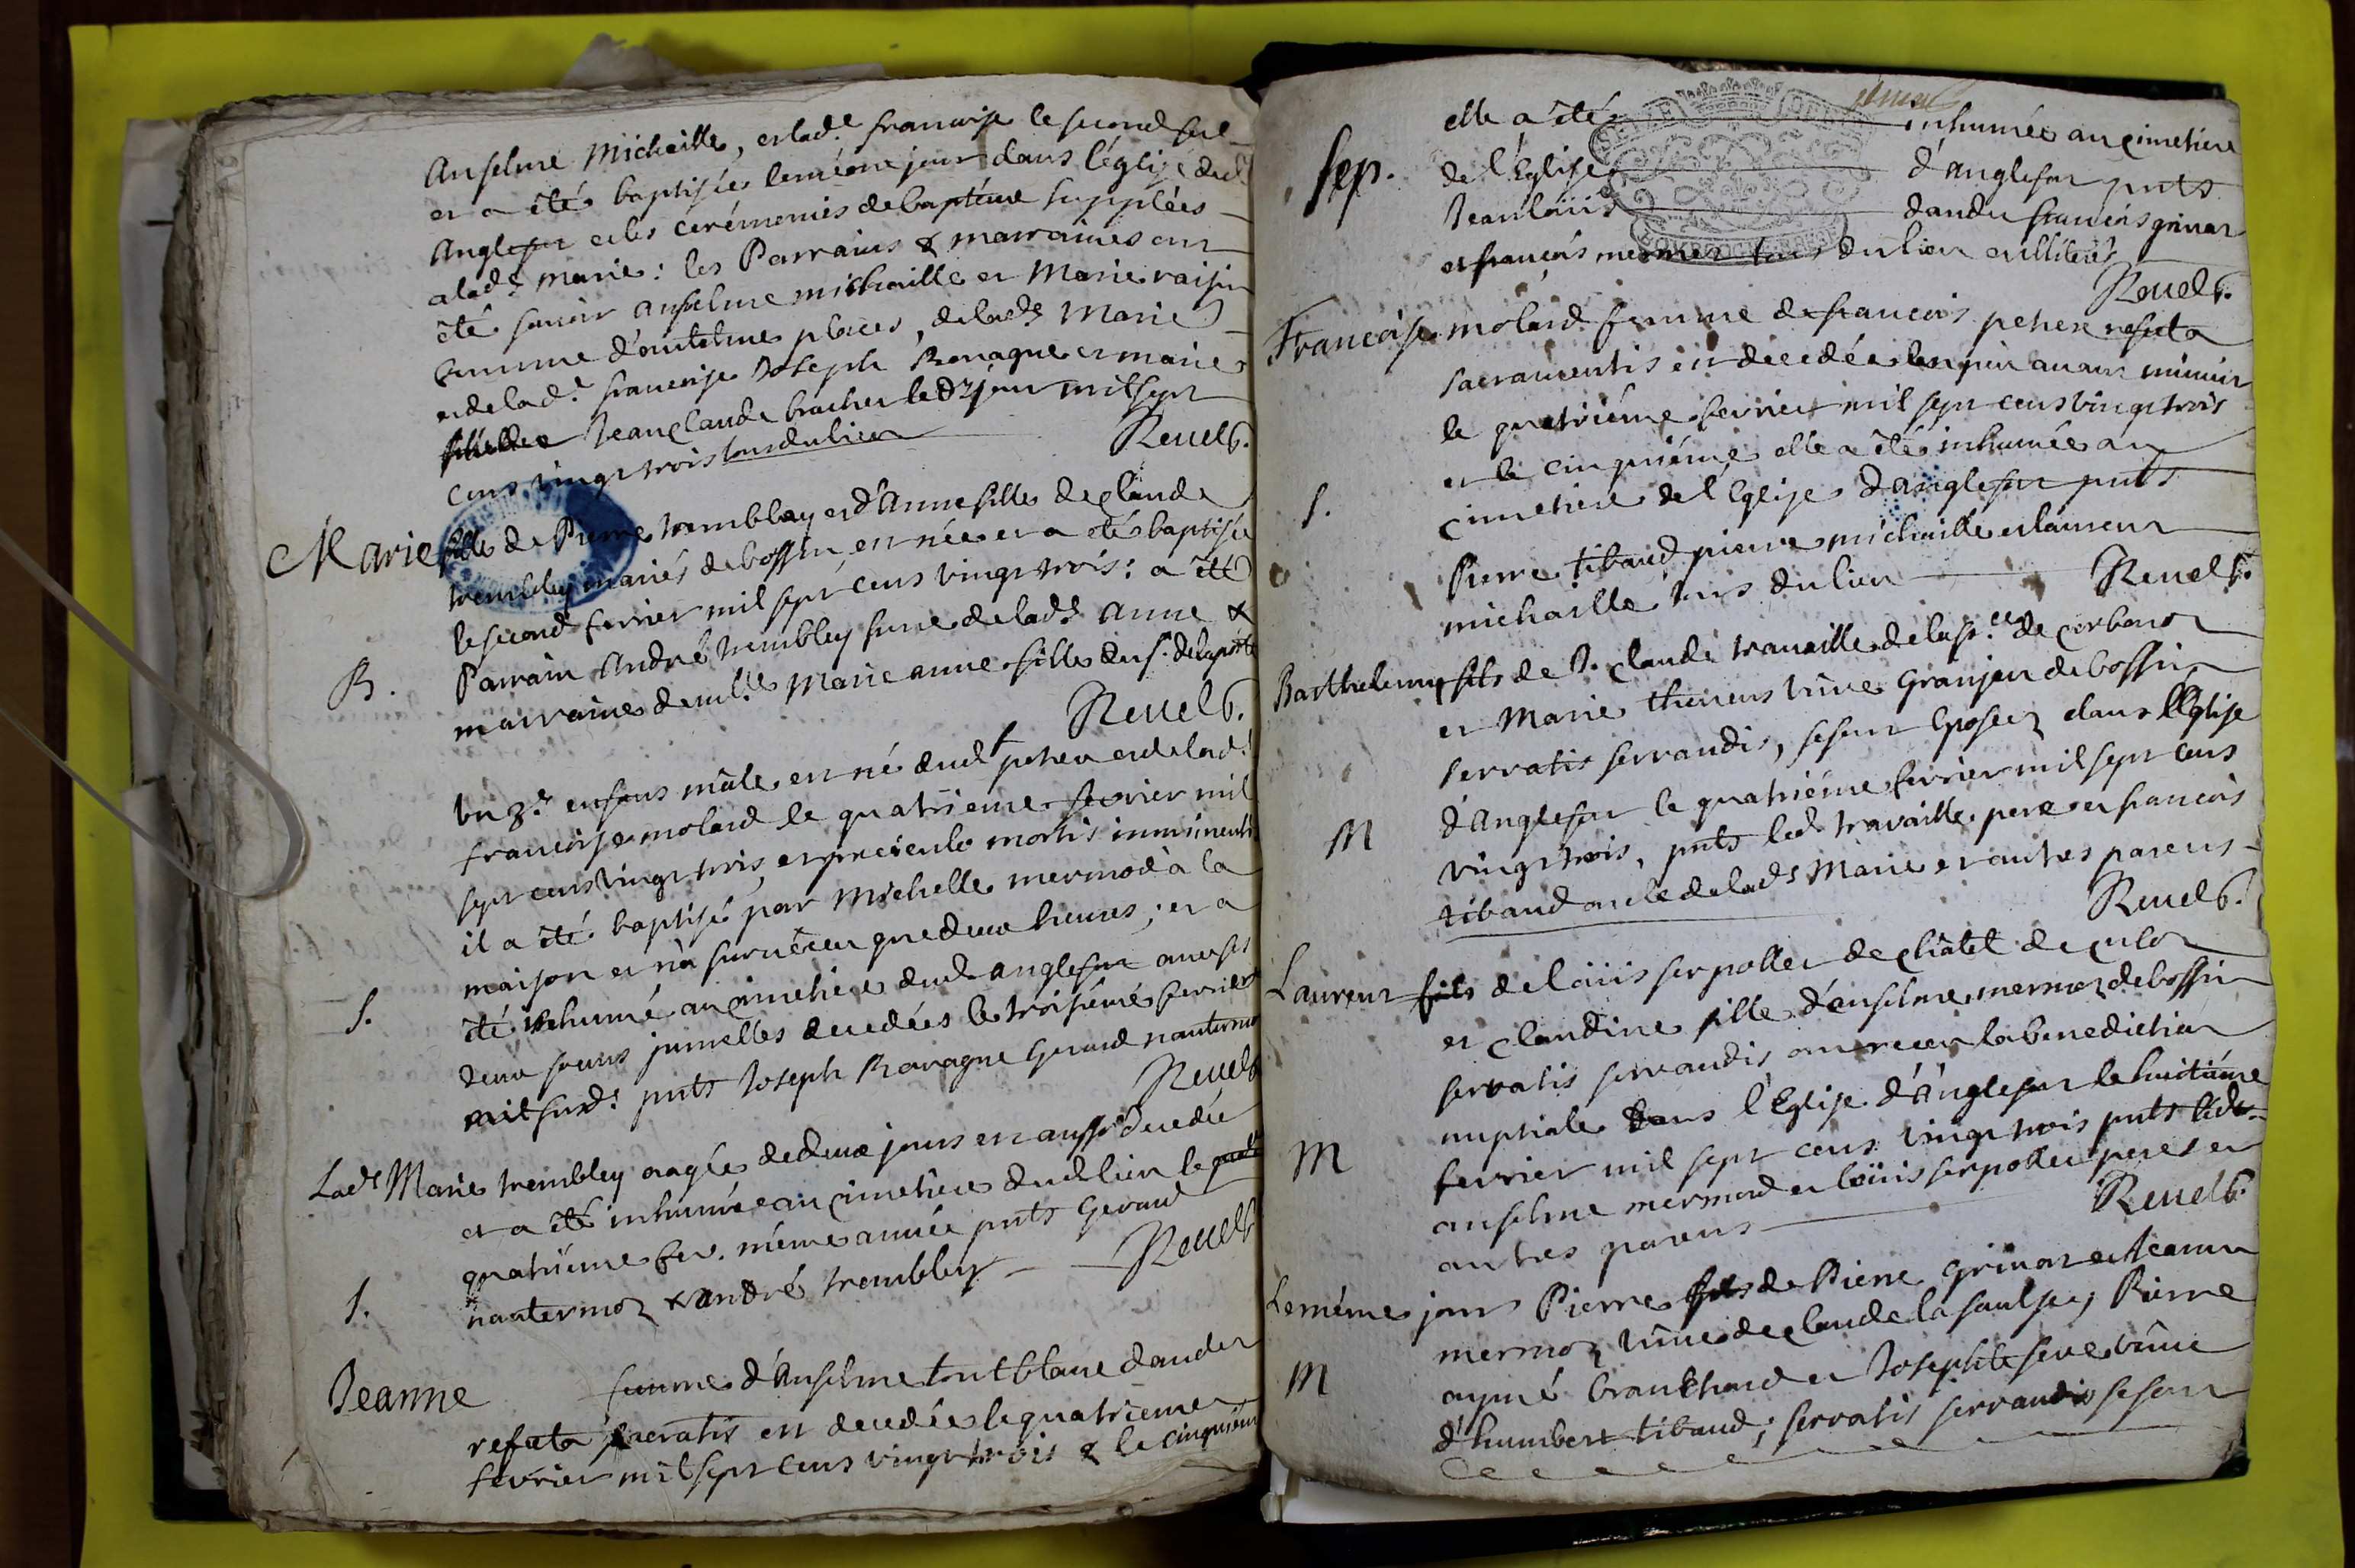 Anselme Michaille, et lad.e francoise le second sud.
et a êté baptisées le même jour dans l'église dud.
Anglefor et les cérémonies de baptême supplées
a lad.e marie: les Parrains & marraines ont
êté savoir anselme michaille et Marie raisin
femme d'antelme places, de lad.e Marie
et de lad.e francoise Joseph Ravagne et marie
Jean claude brachet le dt jour mil sept
cens vingt trois tous du lieu
Revel C.
Marie fille de Pierre trembley et d'Anne fille de claude
trembley mariés de bossin, est née et a eté baptisée
le second fevrier mil sept cens vingt trois: a êté
B.
Parrain André trembley frere de lad.e anne &
marraine demlle Marie anne fille du s.
Revel C.
un 3.e enfans mâle est né dud. peney et de lad.e
francoise molard le quatrieme fevrier mil
sept cens vingt trois, et periculo mortis imminenti
il a êté baptisé par Michelle mermod à la
maison et n'a survêcu que deux heures; et a
S.
êté inhumé au cimetiere dud. anglefor avec ses
deux soeurs jumelles decedées le troisiéme fevrier
mil susd. pnts Joseph Ravagne Geraud nantermoz
Revel C.
Lad.e Marie trembley aagée de deux jours est aussi decedée
et a êté inhumée au cimetiere dud. lieu le
quatriéme fev. même année pnts Geraud
S.
nantermoz & andré trembley
Revel C.
Jeanne femme d'Anselme toutblanc d'andert
refecta sacratis est decedée le quatrieme
fevrier mil sept cens vingt trois & le cinquiém
elle a êté inhumée au cimetiere
Sep.
de l'Eglise d'Anglefor pnts
Jean louis dandu francois grinat
et francois mermet tous du lieu et illiterés
Revel C.
Francoise molard femme de francois peney refecta
sacramentis est decedée avant minuit
le quatriéme fevrier mil sept cens vingt trois
et le cinquiéme elle a êté inhumée au
S.
cimetiere de l'Eglise d'anglefor pnts
Pierre tibaud pierre michaille et laurent
michaille tous du lieu
Revel C.
Barthelemy fils de J. claude travaille de la p.sse de corbonot
et Marie thevens vëuve Granjan de bossin
servatis servandis, se sont Eposez dans l'Eglise
d'Anglefor le quatriéme fevrier mil sept cens
M
vingt trois, pnts led. travaille pere et francois
tibaud oncle de lad.e Marie et autres parens
Revel C.
Laurent fils de loüis serpollet de châtel de culoz
et claudine fille d'anselme mermoz de bossin
servatis servandis, ont receu la benediction
nuptiale dans l'Eglise d'Anglefor le huitiéme
M
fevrier mil sept cens vingt trois pnts led.
anselme mermod et loüis serpollet peres et
autres parens
Revel C.
Le même jour Pierre fils de Pierre grinat et Jeanne
mermoz vëuve de claude la faulse, Pierre
M
aymé branchard et Josephte seve vëuve
d'humbert tibaud; servatis servandis se sont